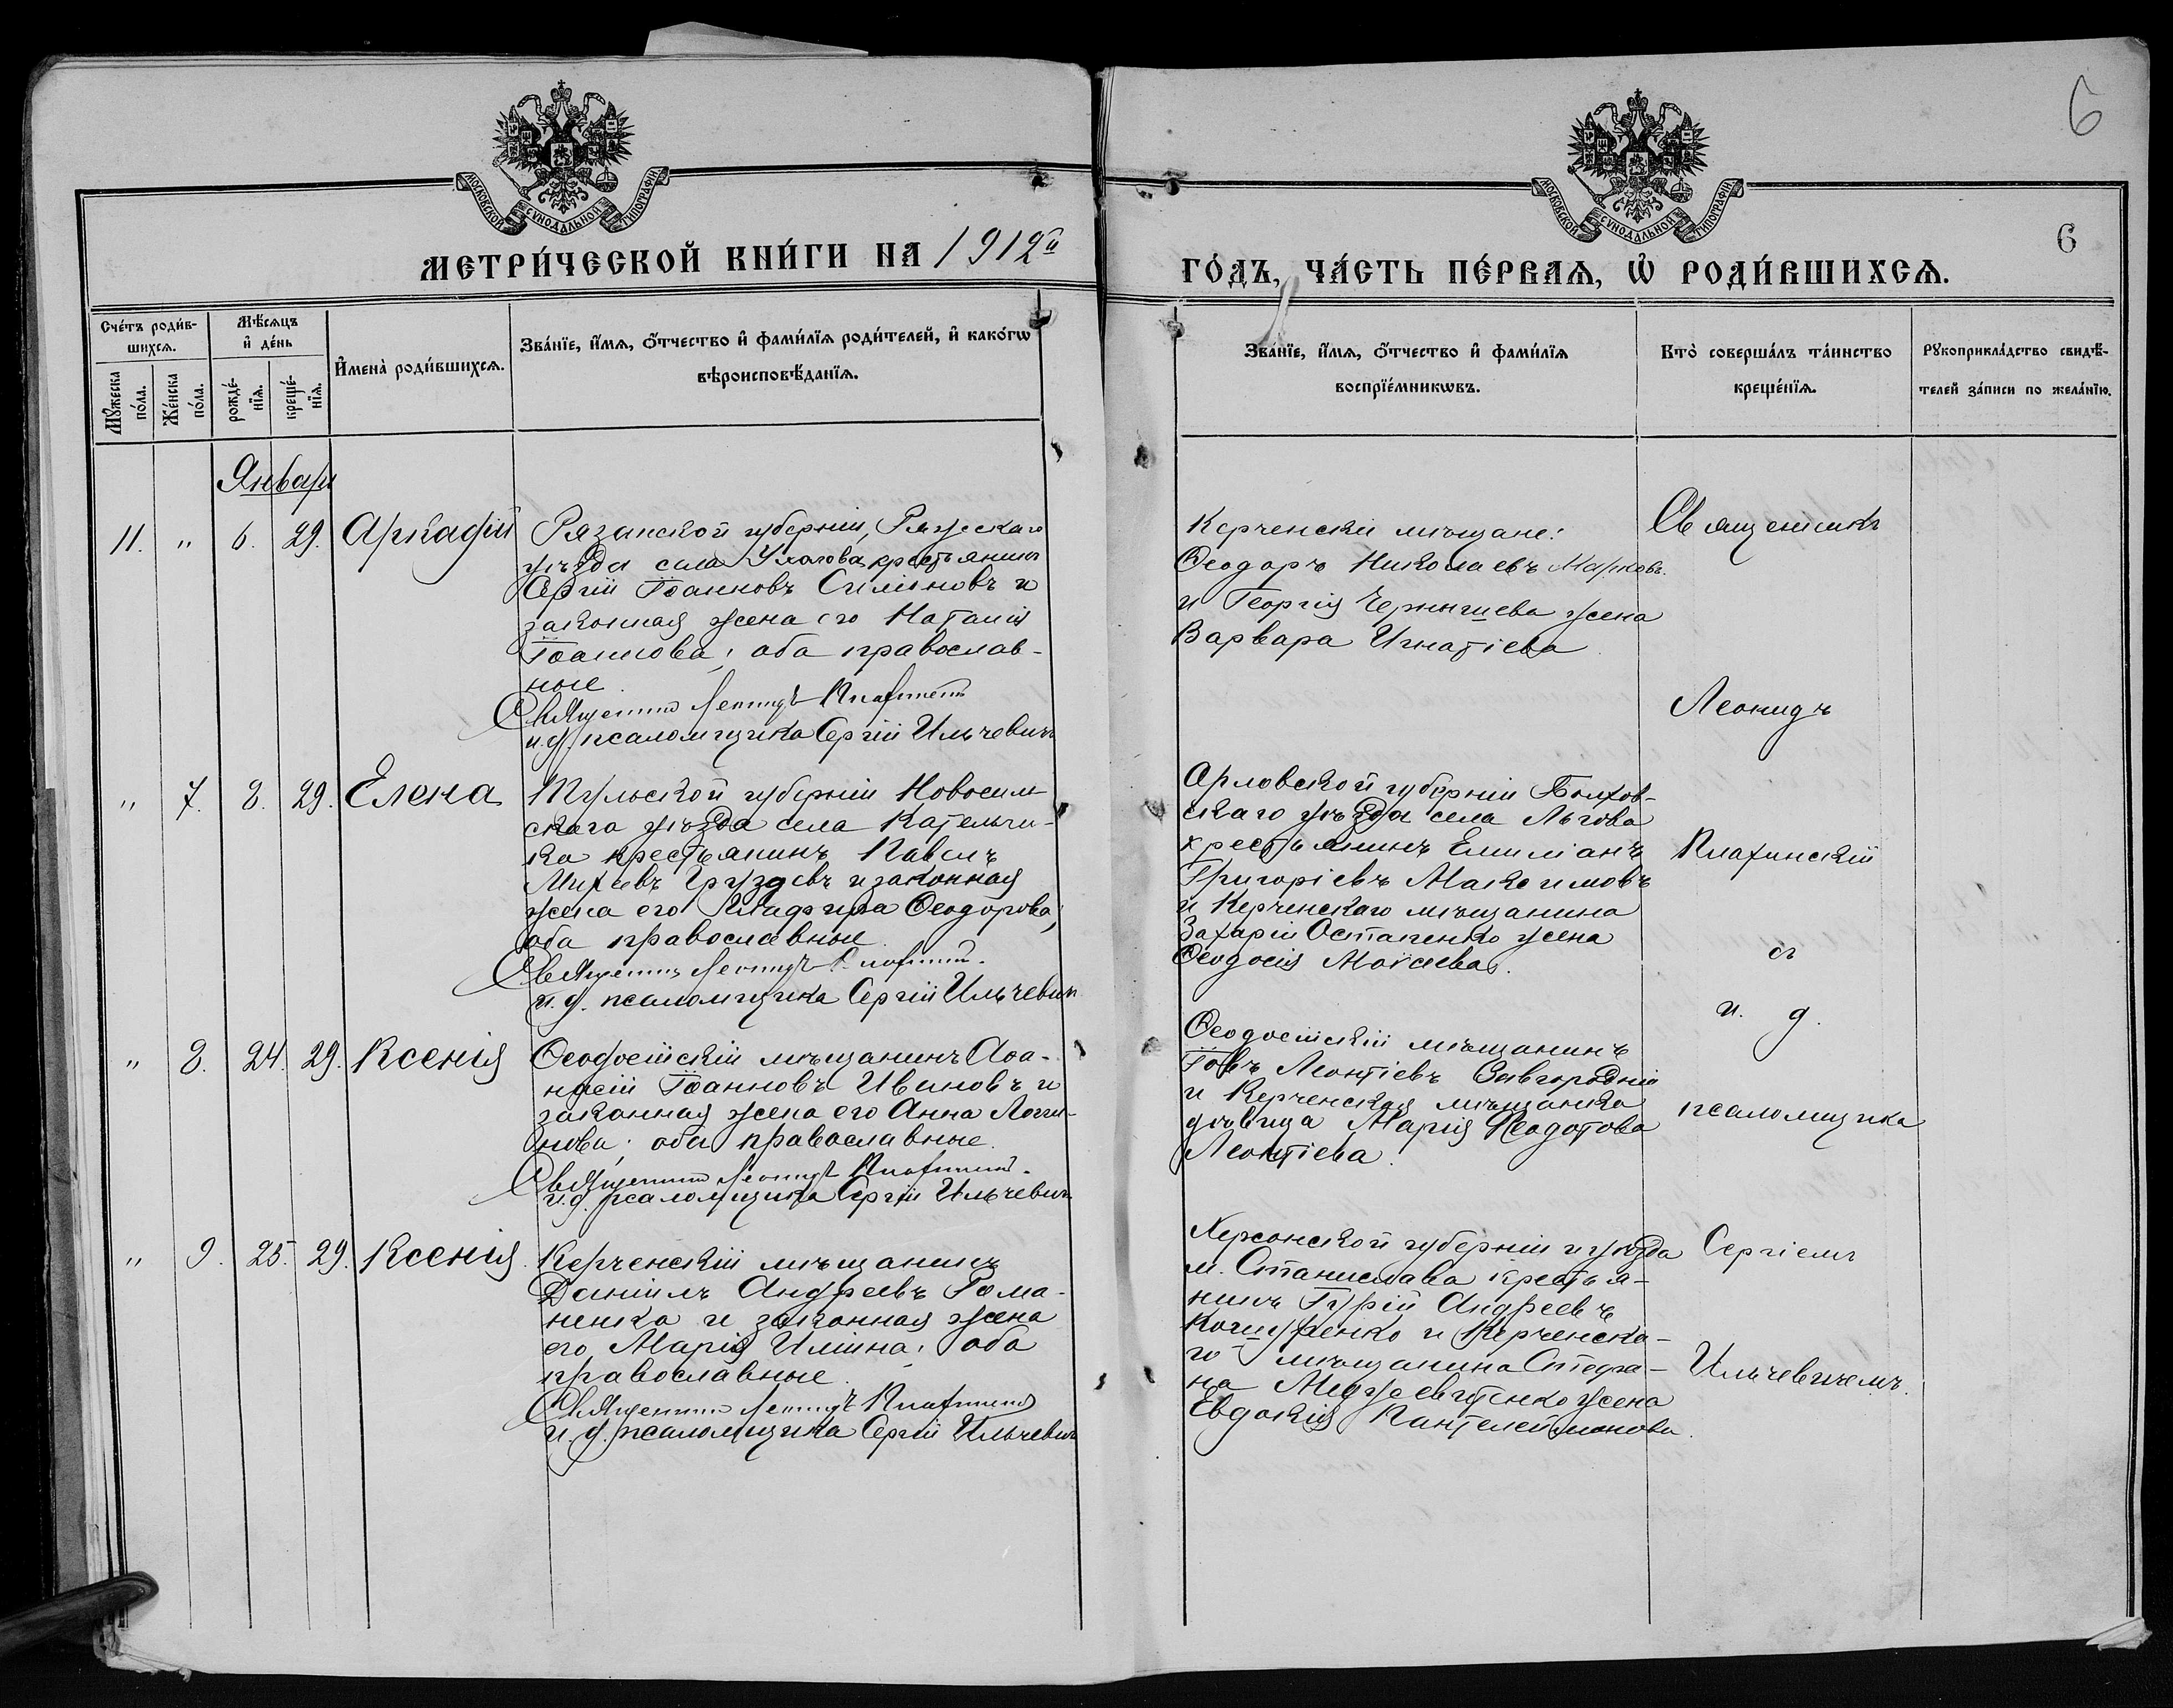 6
МОСКОВСКОЙ СУНОДАЛЬНОЙ ТИПОГРАФІИ
МОСКОВСКОЙ СУНОДАЛЬНОЙ ТИПОГРАФІИ
6
МЕТРИ́ЧЕСКОЙ КНИ́ГИ НА 1912й
ГО́ДЪ, ЧА́СТЬ ПЕ́РВАѦ, Ѡ҆ РОДИ́ВШИХСѦ.
Сче́тъ роди́в-
шихсѧ.
Мѣ́сѧцъ
и҆ де́нь
Мꙋ́жеска
по́ла.
Же́нска
по́ла.
рожде́-
нїѧ.
креще́-
нїѧ.
И҆мена̀ роди́вшихсѧ.
Зва́нїе, и҆́мѧ, ѻ҆́тчество и҆ фами́лїѧ роди́телей, и҆ како́гѡ
вѣроисповѣ́данїѧ.
Зва́нїе, и҆́мѧ, ѻ҆́тчество и҆ фами́лїѧ
воспрїе́мникѡвъ.
Кто̀ соверша́лъ та́инство
креще́нїѧ.
Рꙋкоприкла́дство свидѣ́-
телей за́писи по жела́нїю.
Январь
11. " 6. 29. Аркадій
Рязанской губерніи, Ряжскаго
уѣзда села Ухолова крестьянинъ
Сергій Іоанновъ Симоновъ и
законная жена его Наталія
Іоаннова; оба православ-
ные.
Священникъ Леонидъ Плахинскій
и.д. псаломщика Сергій Ильчевичъ
Керченскіи мѣщане:
Ѳеодоръ Николаевъ Марковъ
и Георгія Чернышева жена
Варвара Игнатіева
Священникъ
Леонидъ
" 7. 8. 29. Елена
Тульской губерніи Новосиль-
скаго уѣзда села Котельни-
ка крестьянинъ Павелъ
Михеевъ Груздевъ и законная
жена его Глафира Ѳеодорова;
оба православные.
Священникъ Леонидъ Плахинскій.
и.д. псаломщика Сергій Ильчевичъ
Орловской губерніи Болхов-
скаго уѣзда села Льгова
крестьянинъ Емиліанъ
Григоріевъ Максимовъ
и Керченскаго мѣщанина
Захарія Остапенко жена
Ѳеодосія Моисеева.
Плахинскій
съ
и. д.
" 8. 24. 29. Ксенія
Ѳеодосійскій мѣщанинъ Аѳа-
насій Іоанновъ Ивановъ и
законная жена его Анна Логги-
нова; оба православные.
Священникъ Леонидъ Плахинскій.
и.д. псаломщика Сергій Ильчевичъ
Ѳеодосійскій мѣщанинъ
Іовъ Леонтіевъ Завгородній
и Керченская мѣщанка
дѣвица Марія Ѳеодотова
Леонтіева.
псаломщика
" 9. 25. 29. Ксенія.
Керченскій мѣщанинъ
Даніилъ Андреевъ Рома-
ненко и законная жена
его Марія Иліина; оба
православные.
Священникъ Леонидъ Плахинскій
и.д. псаломщика Сергій Ильчевичъ
Херсонской губерніи и уѣзда
м. Станислава крестья-
нинъ Гурій Андреевъ
Кошуренко и Керченска-
го мѣщанина Стефа-
на жена
Евдокія Пантелеймонова.
Сергіемъ
Ильчевичемъ.